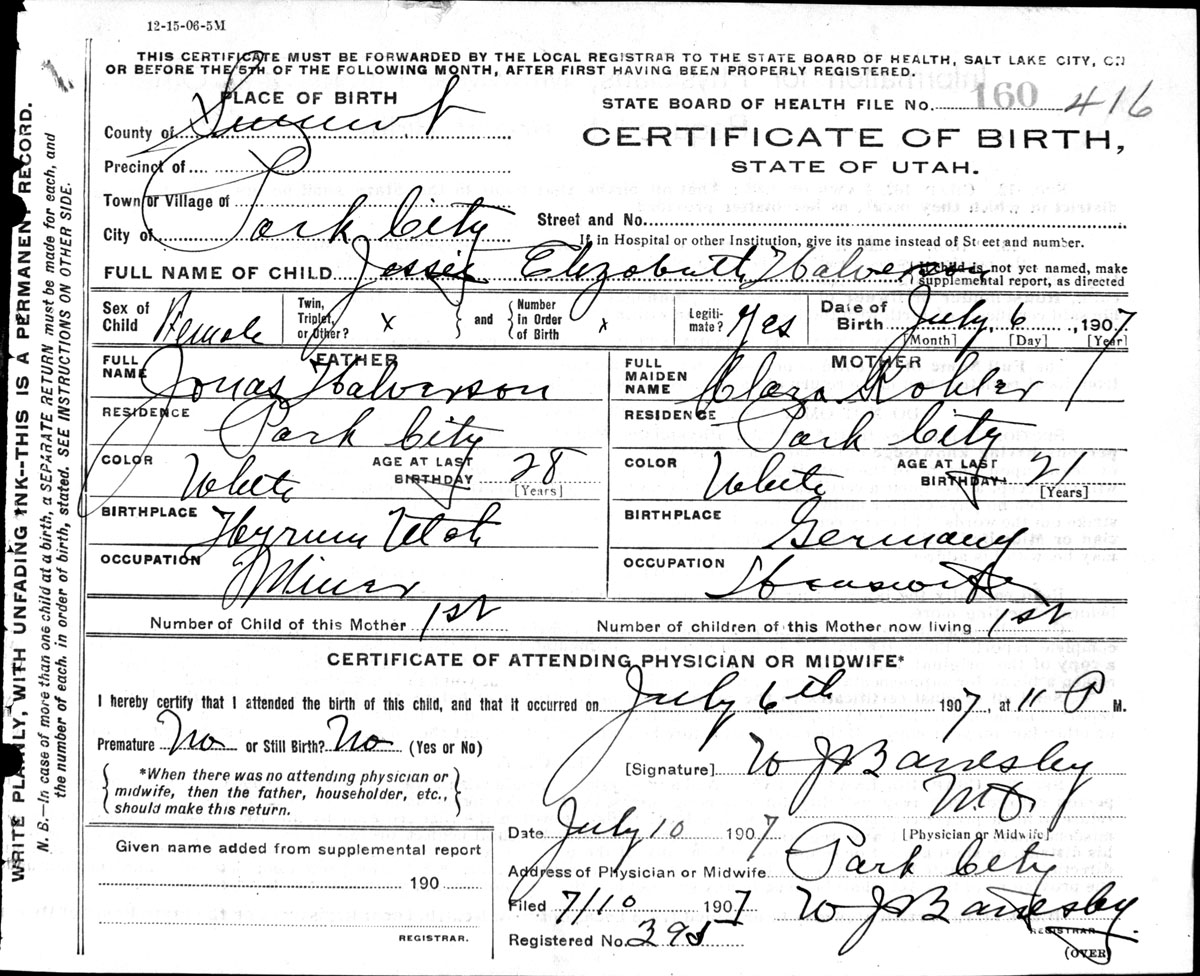 12-15-06-5M
THIS CERTIFICATE MUST BE FORWARDED BY THE LOCAL REGISTRAR TO THE STATE BOARD OF HEALTH, SALT LAKE CITY, ON
OR BEFORE THE 5TH OF THE FOLLOWING MONTH, AFTER FIRST HAVING BEEN PROPERLY REGISTERED.
WRITE PLAINLY, WITH UNFADING INK--THIS IS A PERMANENT RECORD.
N. B.—In case of more than one child at a birth, a SEPARATE RETURN must be made for each, and
the number of each, in order of birth, stated. SEE INSTRUCTIONS ON OTHER SIDE.
PLACE OF BIRTH
County of Summit
Precinct of
Town or Village of
City of Park City
STATE BOARD OF HEALTH FILE No. 160 416
CERTIFICATE OF BIRTH,
STATE OF UTAH.
Street and No.
If in Hospital or other Institution, give its name instead of Street and number.
FULL NAME OF CHILD Jessie Elizabeth Halverson
If child is not yet named, make
supplemental report, as directed
Sex of Child Female
Twin, Triplet, or Other? x
and
Number in Order of Birth x
Legiti-mate? Yes
Date of Birth July 6, 1907
[Month] [Day] [Year]
FATHER
FULL NAME Jonas Halverson
RESIDENCE Park City
COLOR White
AGE AT LAST BIRTHDAY 28
[Years]
BIRTHPLACE Hyrum Utah
OCCUPATION Miner
MOTHER
FULL MAIDEN NAME Clara Kohler
RESIDENCE Park City
COLOR White
AGE AT LAST BIRTHDAY 21
[Years]
BIRTHPLACE Germany
OCCUPATION Housewife
Number of Child of this Mother 1st
Number of children of this Mother now living 1st
CERTIFICATE OF ATTENDING PHYSICIAN OR MIDWIFE*
I hereby certify that I attended the birth of this child, and that it occurred on July 6th 1907, at 11 P M.
Premature No or Still Birth? No (Yes or No)
*When there was no attending physician or
midwife, then the father, householder, etc.,
should make this return.
[Signature] W J Bardsley
M.D.
[Physician or Midwife]
Date July 10 1907
Address of Physician or Midwife Park City
Filed 7/10 1907 W J Bardsley
REGISTRAR
Registered No. 395
(OVER)
Given name added from supplemental report
190
REGISTRAR.